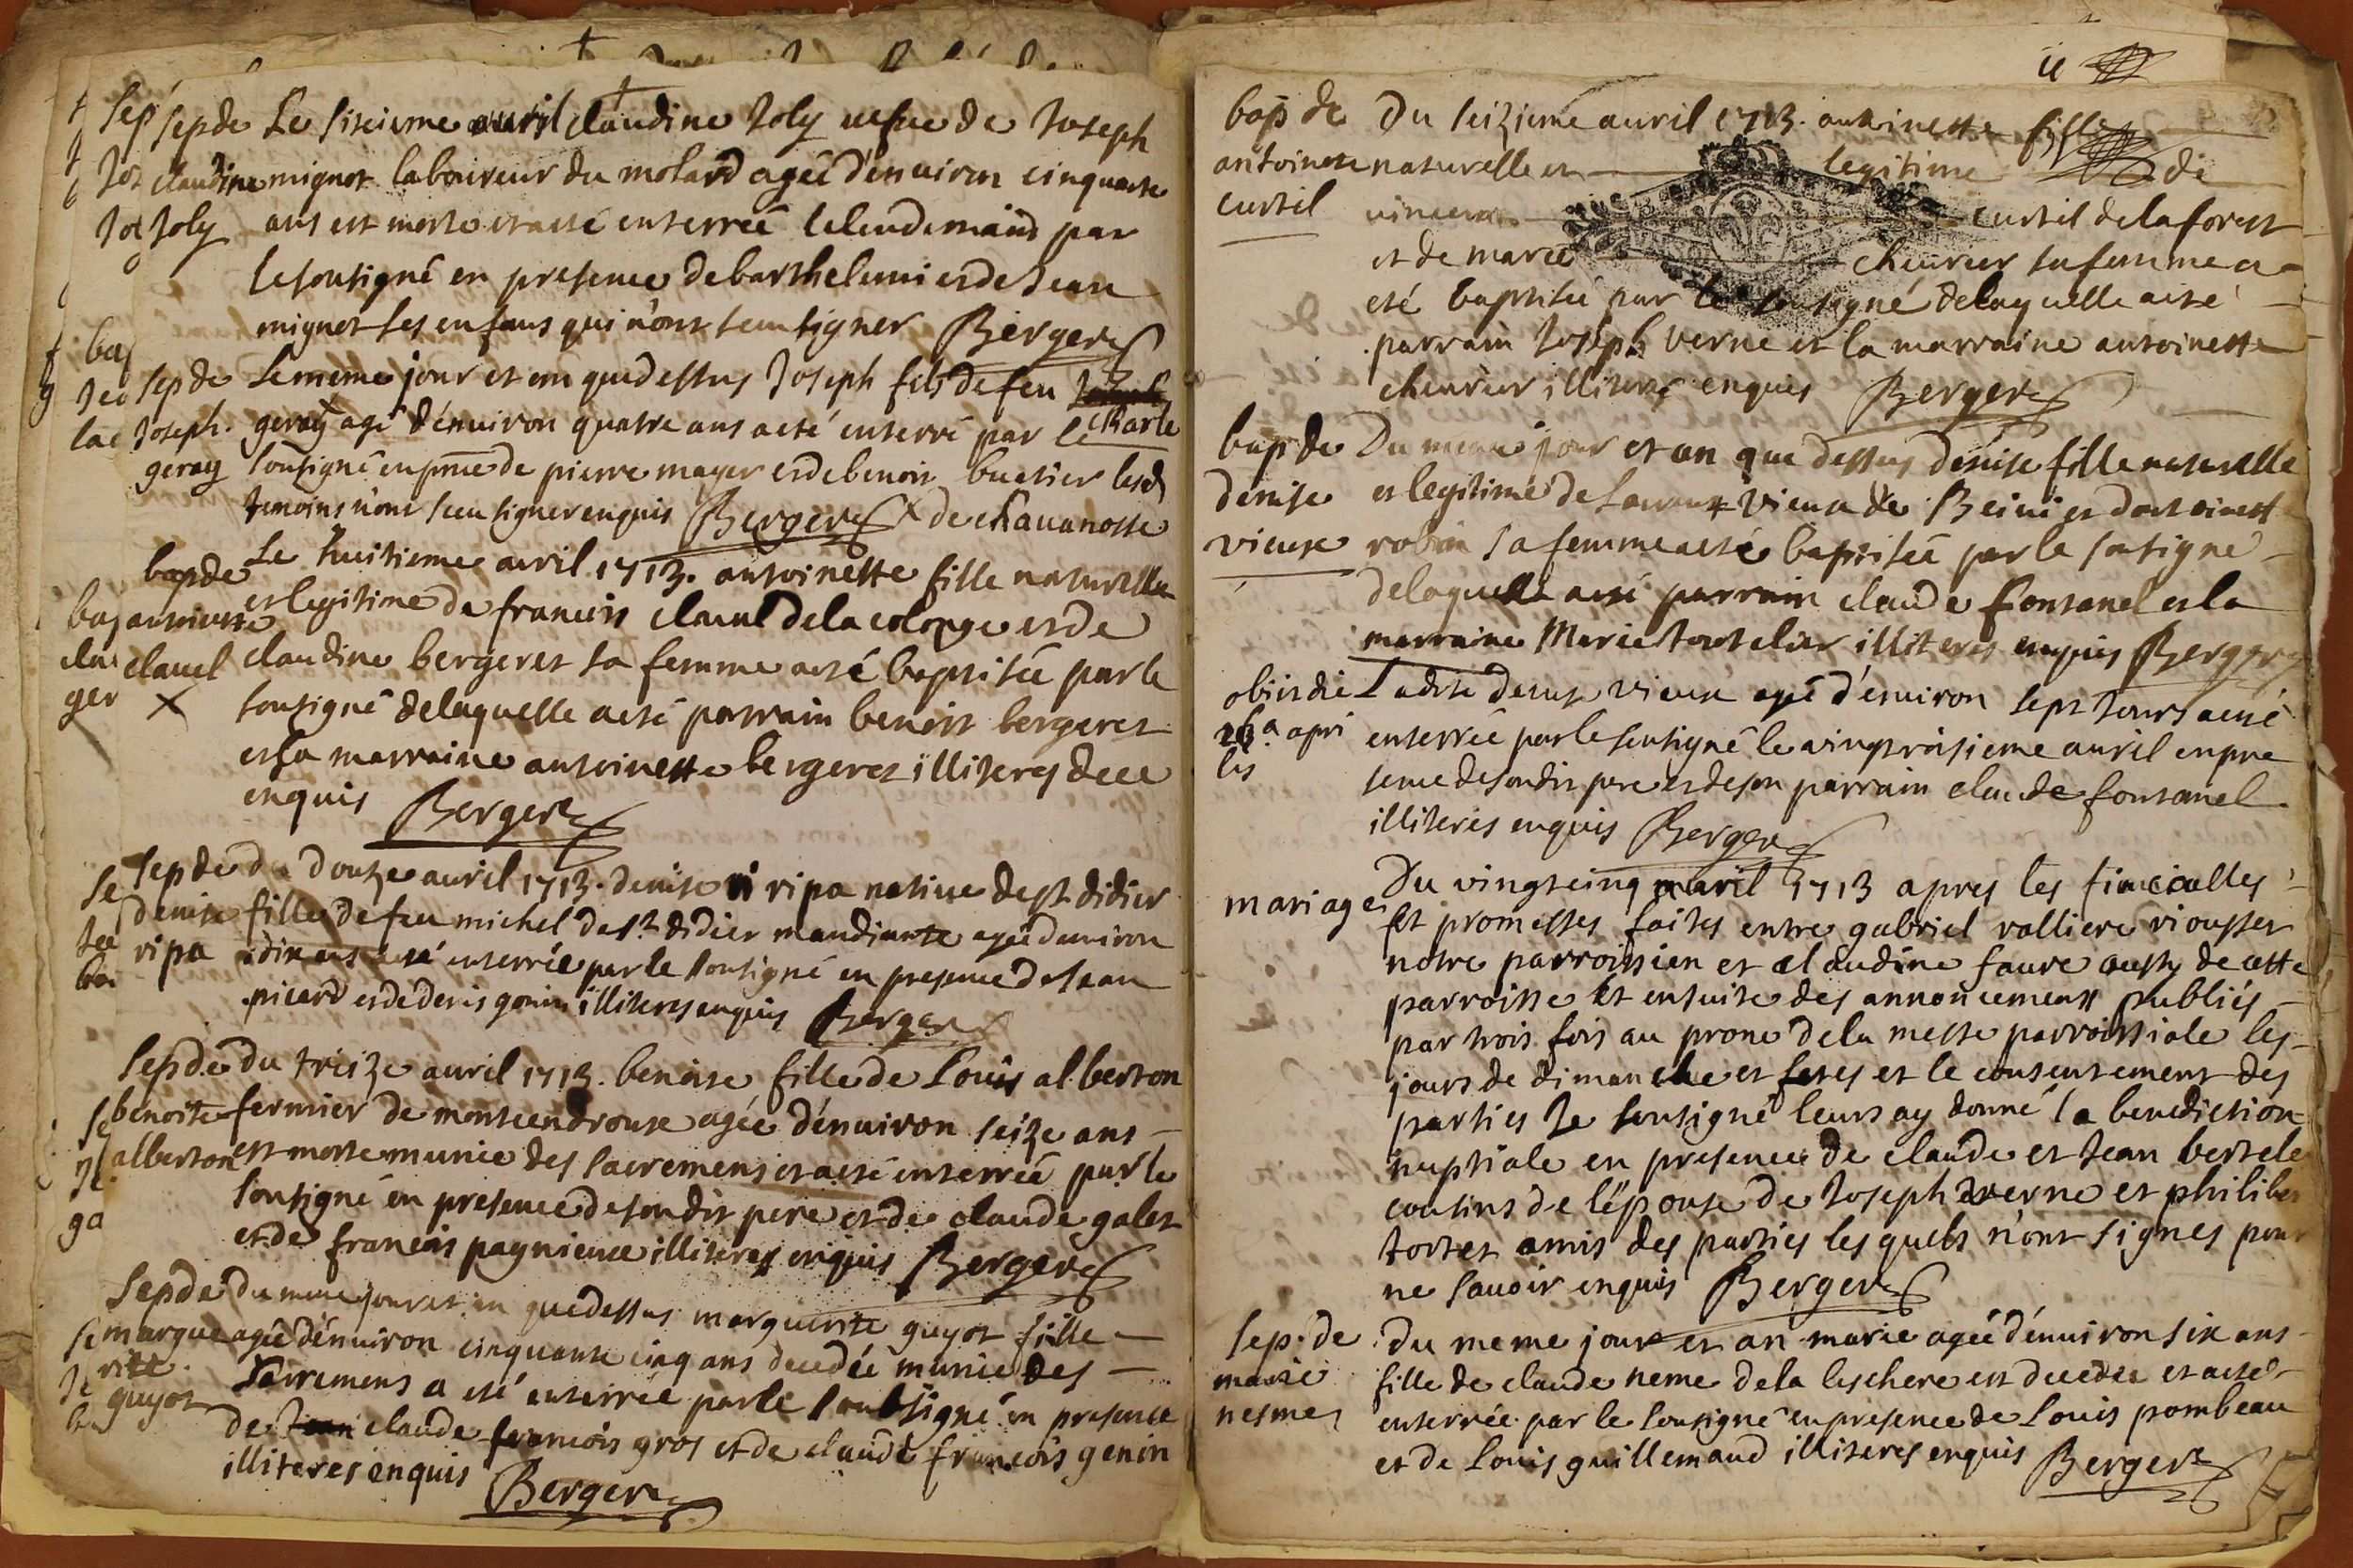 Sepde Le sixieme auril claudine Joly uefue de Joseph
claudine mignot laboureur du molard agée d'enuiron cinquante
Joly ans est morte et a esté enterreé le lendemain par
le sousigné en presence de barthelemi et de Jean
mignot ses enfans qui n'ont sceu signer Berger
sepde Le meme jour et an que dessus Joseph fils de feu
charle
Joseph geray agé d'enuiron quatre ans a eté enterré par le
geray sousigné en pnce de pierre mayer et de benoit buatier lesd
temoins n'ont sceu signer enquis Berger de chauanosse
bapde Le huitieme auril 1713. antoinette fille naturelle
antoinette et legitime de francois clauel de la colonge et de
clauel claudine bergeret sa femme a eté baptiseé par le
sousigné de laquelle a esté parrain benoist bergeret
et la marraine antoinette bergeret illiteres de ce
enquis Berger
sepde du douze auril 1713. denise ripa natiue de st didier
denise fille de feu michel de st didier mandiante ageé d'enuiron
ripa dix ans a esté enterrée par le sousigné en presence de Jean
picard et de denis gonin illiteres enquis Berger
Sepde du treize auril 1713. benoite fille de Louis alberton
benoite fermier de montcendroux agée d'enuiron seize ans
alberton est morte munie des sacremens et a esté enterreé par le
sousigné en presence de son dit pere et de claude galet
et de francois pagnieux illiteres enquis Berger
Sepde du meme jour et an que dessus marguerite guyot fille
margue agée d'enuiron cinquante cinq ans decedée munie des
rite
guyot sacremens a esté enterrée par le soubsigné en presence
de claude francois gros et de claude francois genin
illiteres enquis Berger
bap de Du seizieme auril 1713. antoinette fille
antoinette naturelle et legitime de
curtil vincent curtil de la forest
et de marie cheurier sa femme a
eté baptisée par le sousigné de laquelle a esté
parrain Joseph verne et la marraine antoinette
cheurier illiteres enquis Berger
bap de Du meme jour et an que dessus denise fille naturelle
denise et legitime de Laurent vieux de et d'antoinette
vieux robin sa femme a esté baptiseé par le sousigné
de laquelle a esté parrain claude fontanel et la
marraine Marie illiteres enquis Berger
obiit die Ladite denise vieux ageé d'enuiron sept Jours a esté
apri enterreé par le sousigné le vingt troisieme auril en pre
lis sence de son dit pere et de son parrain claude fontanel
illiteres enquis Berger
mariage Du vingt cinq auril 1713 apres les fiancialles
et promesses faites entre gabriel valliere
notre parroissien et claudine faure aussy de cette
parroisse et ensuite des annoncements publiés
par trois fois au prone de la messe parroissiale les
jours de dimanche et fetes et le consentement des
parties Je sousigné leurs ay donné la benediction
nuptiale en presence de claude et Jean bertele
cousins de l'epouse de Joseph verne et philiber
tortet amis des parties les quels n'ont signes pour
ne sauoir enquis Berger
Sep. de du meme jour et an marie agée d'enuiron six ans
marie fille de claude neme de la leschere est decedeé et a esté
nesme enterrée par le sousigné en presence de Louis pombeau
et de Louis guillemaud illiteres enquis Berger